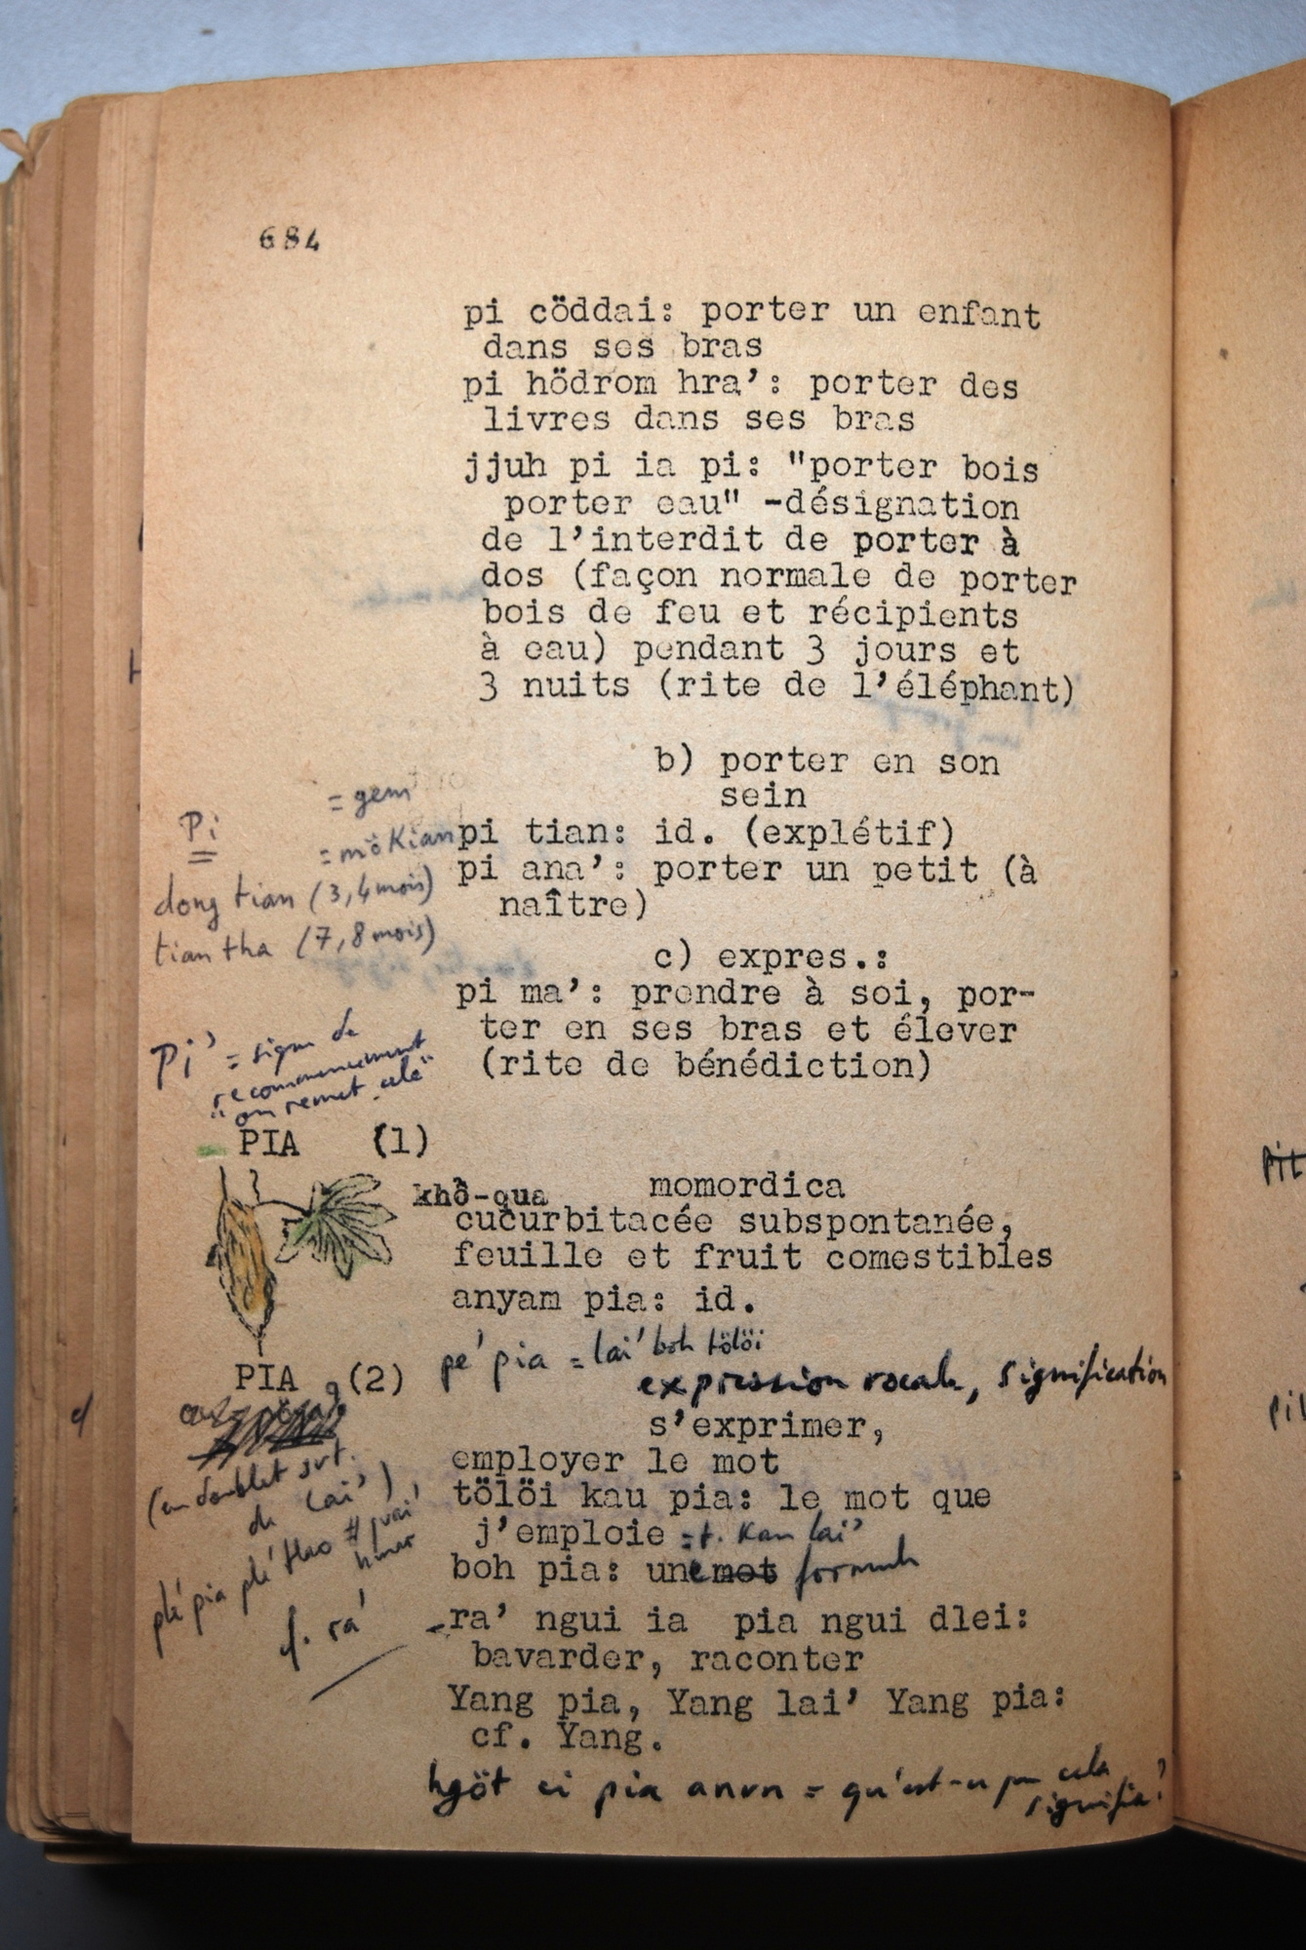 684
pi cöddai: porter un enfant
dans ses bras
pi hödrom hra’: porter des
livres dans ses bras
jjuh pi ia pi: "porter bois
porter eau" -désignation
de l’interdit de porter à
dos (façon normale de porter
bois de feu et récipients
à eau) pendant 3 jours et
3 nuits (rite de l’éléphant)
b) porter en son
sein
= gem
Pi
= mö Kian
pi tian: id. (explétif)
dong tian (3,4 mois)
pi ana’: porter un petit (à
naître)
tian tha (7,8 mois)
c) expres.:
pi ma’: prendre à soi, por-
ter en ses bras et élever
(rite de bénédiction)
Pi’ = signe de
recommencement
"on remet cela"
PIA (1)
khð-qua momordica
cucurbitacée subspontanée,
feuille et fruit comestibles
anyam pia: id.
pe’ pia = lai’ boh tölöi
PIA (2)
expression vocale, signification
s’exprimer,
employer le mot
(en doublet srt.
de lai’)
tölöi kau pia: le mot que
j’emploie = t. Kau lai’
plé pia plé’ thao # pvai’
hmar
boh pia: une mot formule
cf. ra’
ra’ ngui ia pia ngui dlei:
bavarder, raconter
Yang pia, Yang lai’ Yang pia:
cf. Yang.
hgöt ci pia anun = qu’est-ce que cela
signifie?